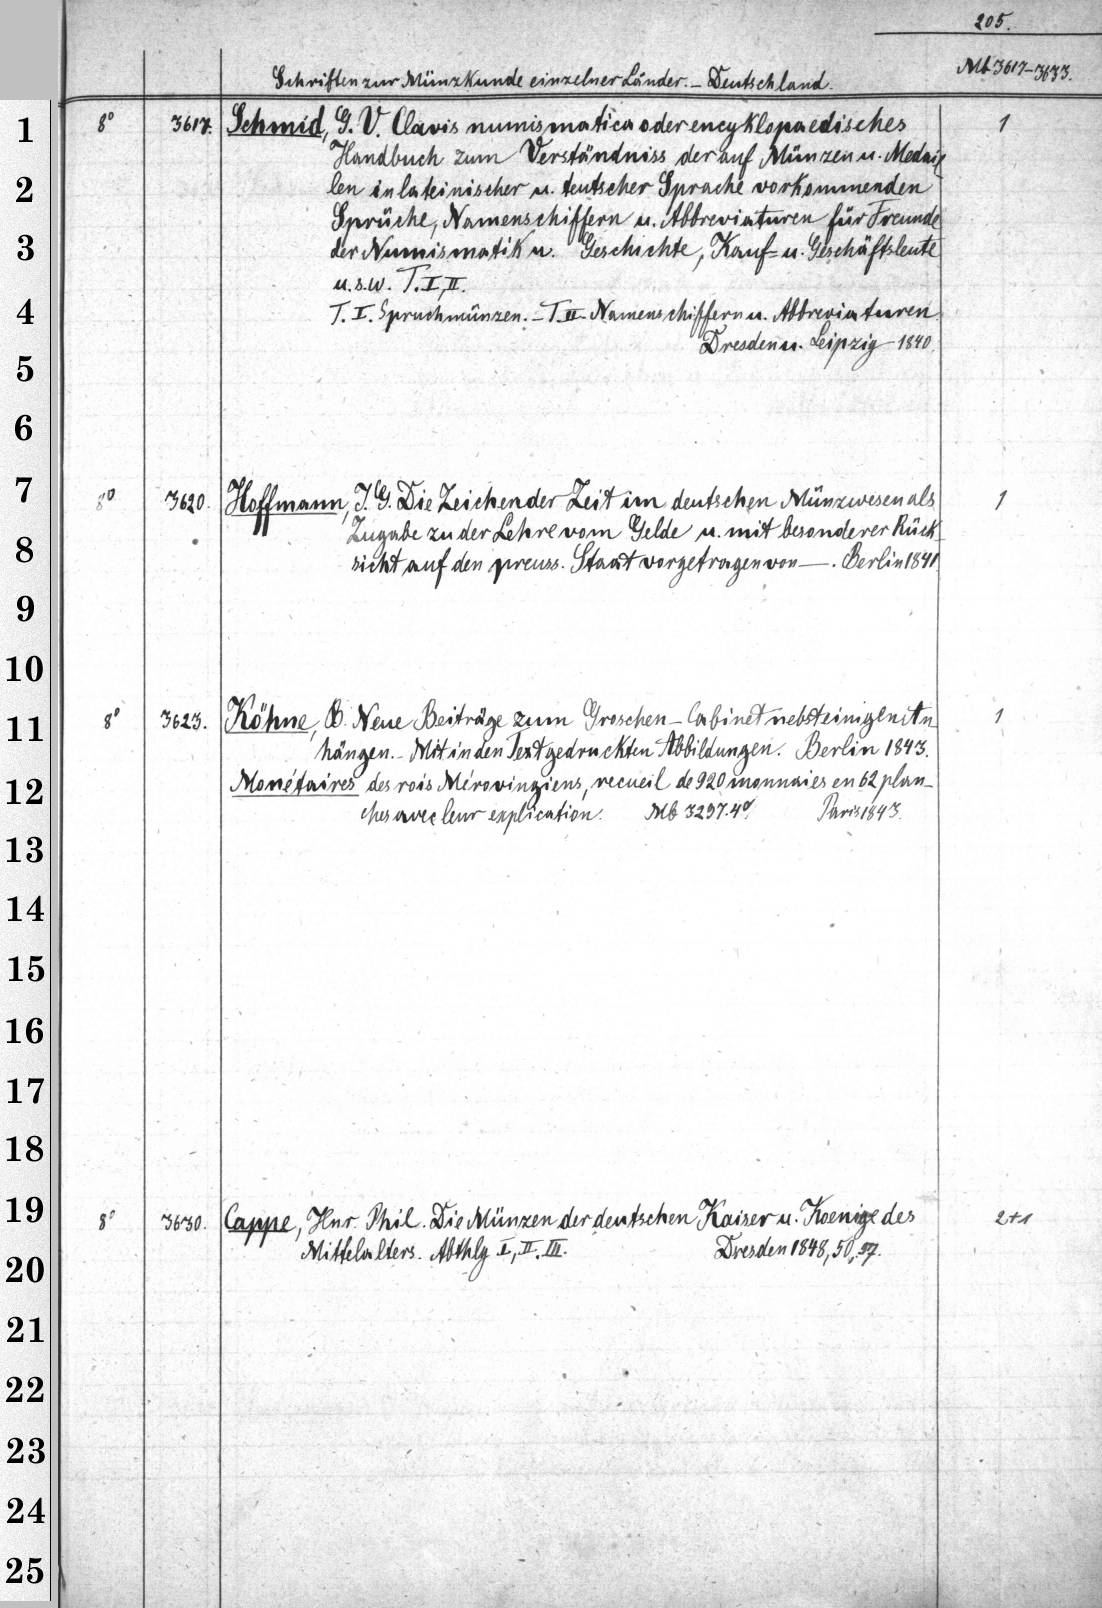 205.
Schriften zur Münzkunde einzelner Länder. – Deutschland.
Mb 3617–3633.
8° 3617. Schmid, G. V. Clavis numismatica oder encyklopaedisches 1
Handbuch zum Verständniss der auf Münzen u. Medail
len in lateinischer u. teutscher Sprache vorkommenden
Sprüche, Namenschiffern u. Abbreviaturen für Freunde
der Numismatik u. Geschichte, Kauf- u. Geschäftsleute
u.s.w. T. I, II.
T. I. Spruchmünzen. – T. II. Namenschiffern u. Abbreviaturen.
Dresden u. Leipzig – 1840.
8° 3620. Hoffmann, J. G. Die Zeichen der Zeit im deutschen Münzwesen als 1
Zugabe zu der Lehre vom Gelde u. mit besonderer Rück
sicht auf den preuss. Staat vorgetragen von —. Berlin 1841
8° 3623. Köhne, B. Neue Beiträge zum Groschen – Cabinet nebst einigen An 1
hängen. – Mit in den Text gedruckten Abbildungen. Berlin 1843.
Monétaires des rois Mérovingiens, recueil de 920 monnaies en 62 plan–
ches avec leur explication. Mb 3297. 4° Paris 1843.
8° 3630. Cappe, Hnr. Phil. Die Münzen der deutschen Kaiser u. Koenige des 2+1
Mittelalters. Abthlg I, II. III. Dresden 1848, 50, 57.
1
2
3
4
5
6
7
8
9
10
11
12
13
14
15
16
17
18
19
20
21
22
23
24
25